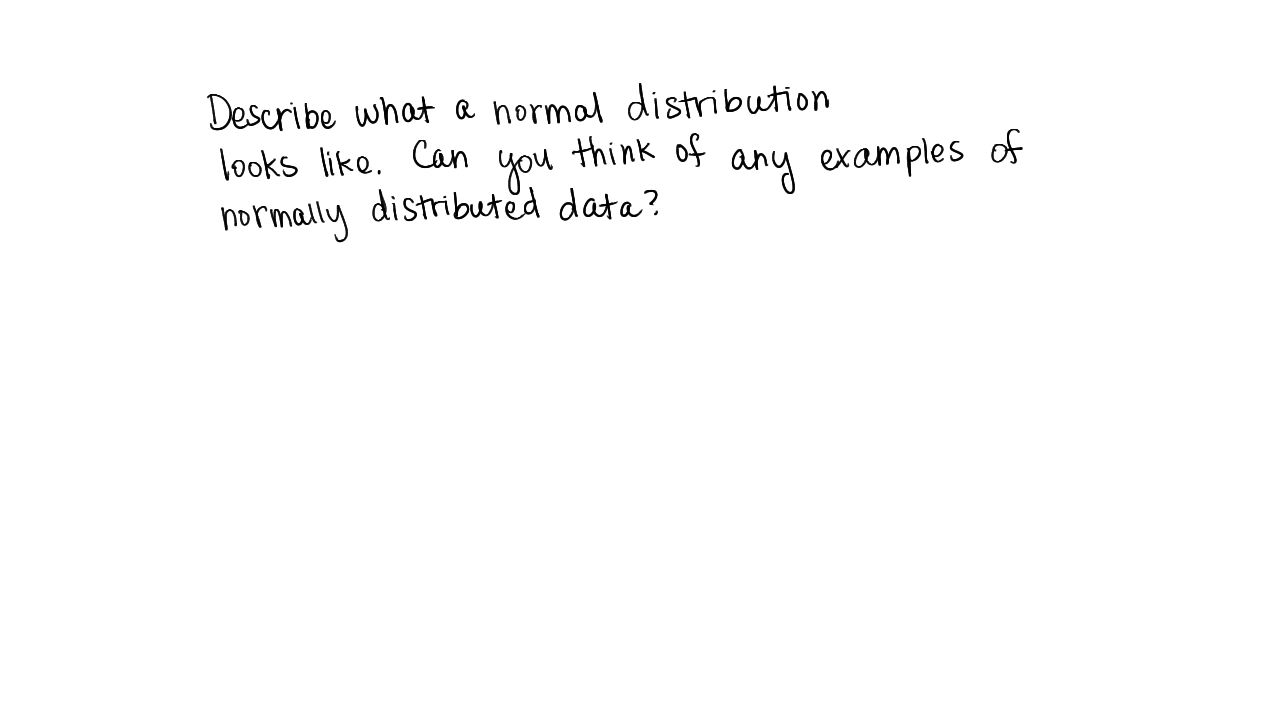 Describe what a normal distribution
looks like. Can you think of any examples of
normally distributed data?